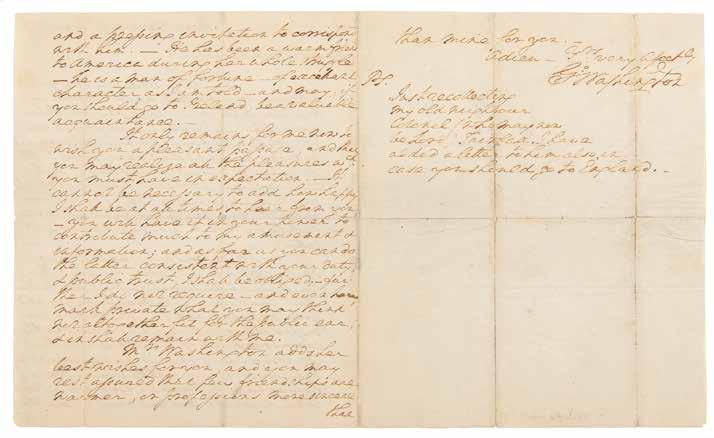 and a pressing invitation to correspond
with him. — He has been a warm friend
to America during her whole struggle
— he is a man of fortune — of excellent
character as I am told — and may, if
you should go to Ireland, be a valuable
acquaintance. —
It only remains for me now to
wish you a pleasant passage, and that
you may realize all the pleasures wch
you must have in expectation. — It
cannot be necessary to add how happy
I shall be at all times to hear from you
— you will have it in your power to
contribute much to my amusement &
information; and as far as you can do
the latter consistent with your duty,
& public trust, I shall be obliged. — far
ther I do not require — and even here
mark private what you may think
not altogether fit for the public ear,
& it shall remain with me.
Mrs Washington adds her
best wishes for you, and you may
rest assured that few friendships are
warmer, or professions more sincere
than
than mine for you. —
Adieu — Yrs very affectly
Go Washington
PS.
Just recollecting
my old neighbour
Colonel who may now
be Lord Fairfax, I have
added a letter to him also, in
case you should go to England. —